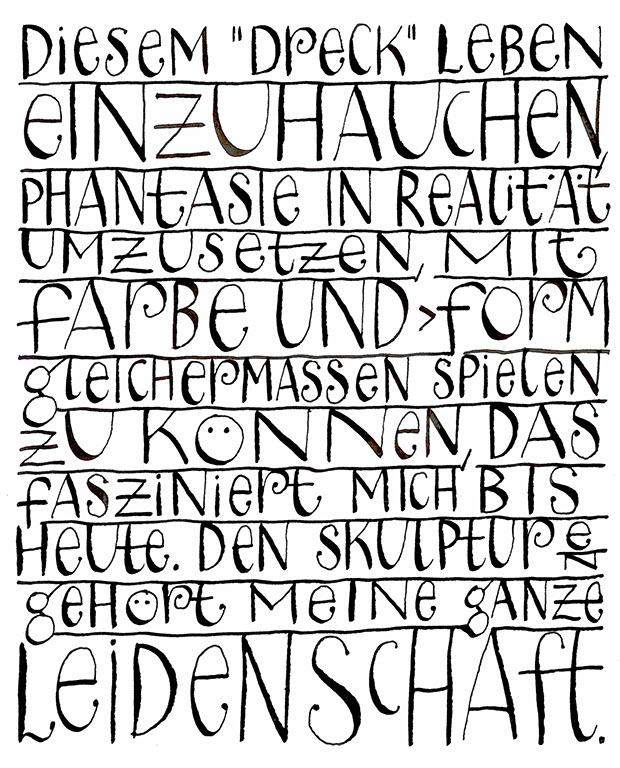 DIESEM "DRECK" LEBEN
EINZUHAUCHEN,
PHANTASIE IN REALITÄT
UMZUSETZEN, MIT
FARBE UND >FORM
GLEICHERMASSEN SPIELEN
ZU KÖNNEN, DAS
FASZINIERT MICH BIS
HEUTE. DEN SKULPTUREN
GEHÖRT MEINE GANZE
LEIDENSCHAFT.